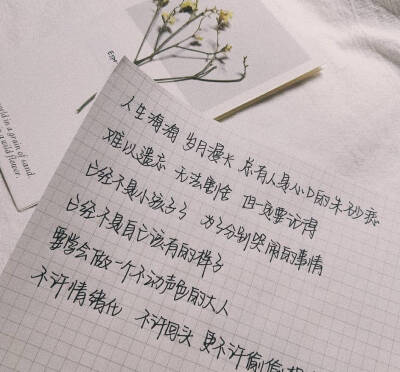 Espe
in a grain of sand,
wild flower.
人生海海 岁月漫长 总有人是心口的朱砂痣
难以遗忘 无法割舍 但一定要记得
已经不是小孩子了 为了分别哭闹的事情
已经不是自己该有的样子
要学会做一个不动声色的大人
不许情绪化 不许回头 更不许偷偷想